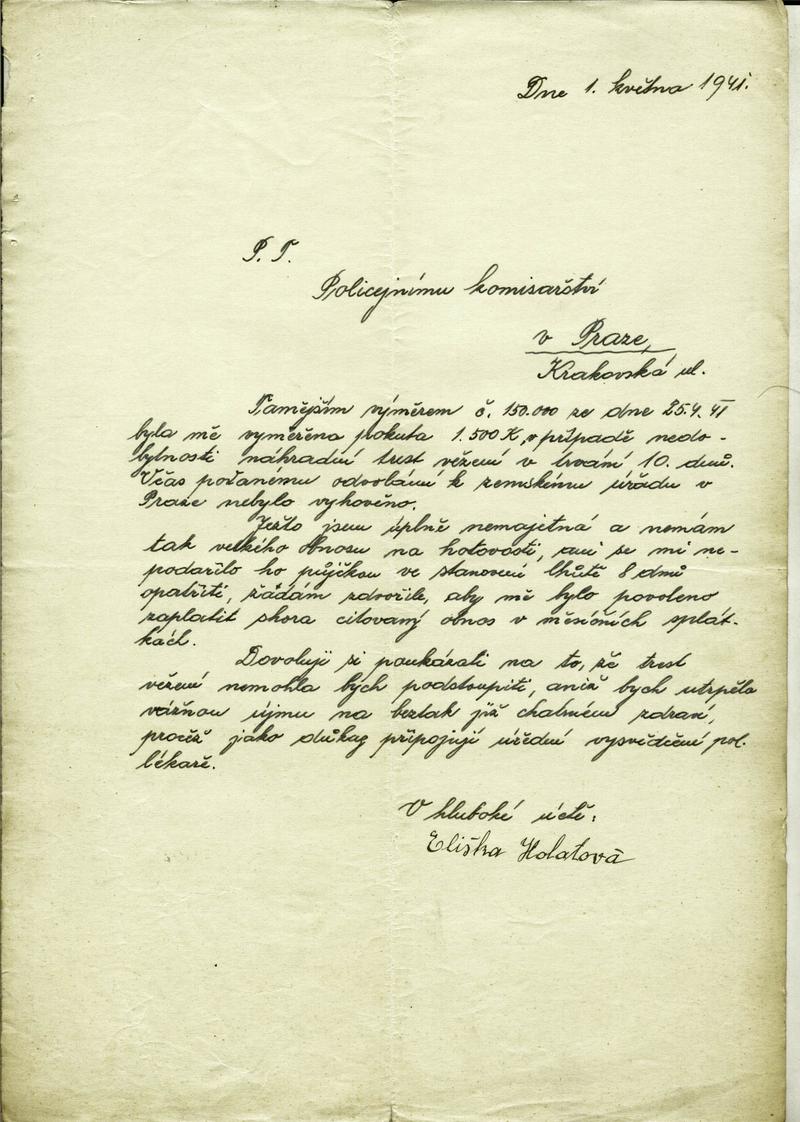 Dne 1. května 1941.
P. T.
Policejnímu komisařství
v Praze,
Krakovská ul.
Tamějším výměrem č. 150.000 ze dne 25.4. 41
byla mě vyměřena pokuta 1.500 K, v případě nedo-
bytnosti náhradní trest vězení v trvání 10. dnů.
Včas podanému odvolání k zemskému úřadu v
Praze nebylo vyhověno.
Ježto jsem úplně nemajetná a nemám
tak velkého obnosu na hotovosti, ani se mi ne-
podařilo ho půjčkou ve stanovení lhůtě 8 dnů
opatřiti, žádám zdvořile, aby mě bylo povoleno
zaplatit shora citovaný obnos v měsíčních splát-
kách.
Dovoluji si poukázati na to, že trest
vězení nemohla bych podstoupiti, aniž bych utrpěla
vážnou újmu na beztak již chatrném zdraví,
pročež jako důkaz připojuji úřední vysvědčení pol.
lékaře.
V hluboké úctě:
Eliška Holatová